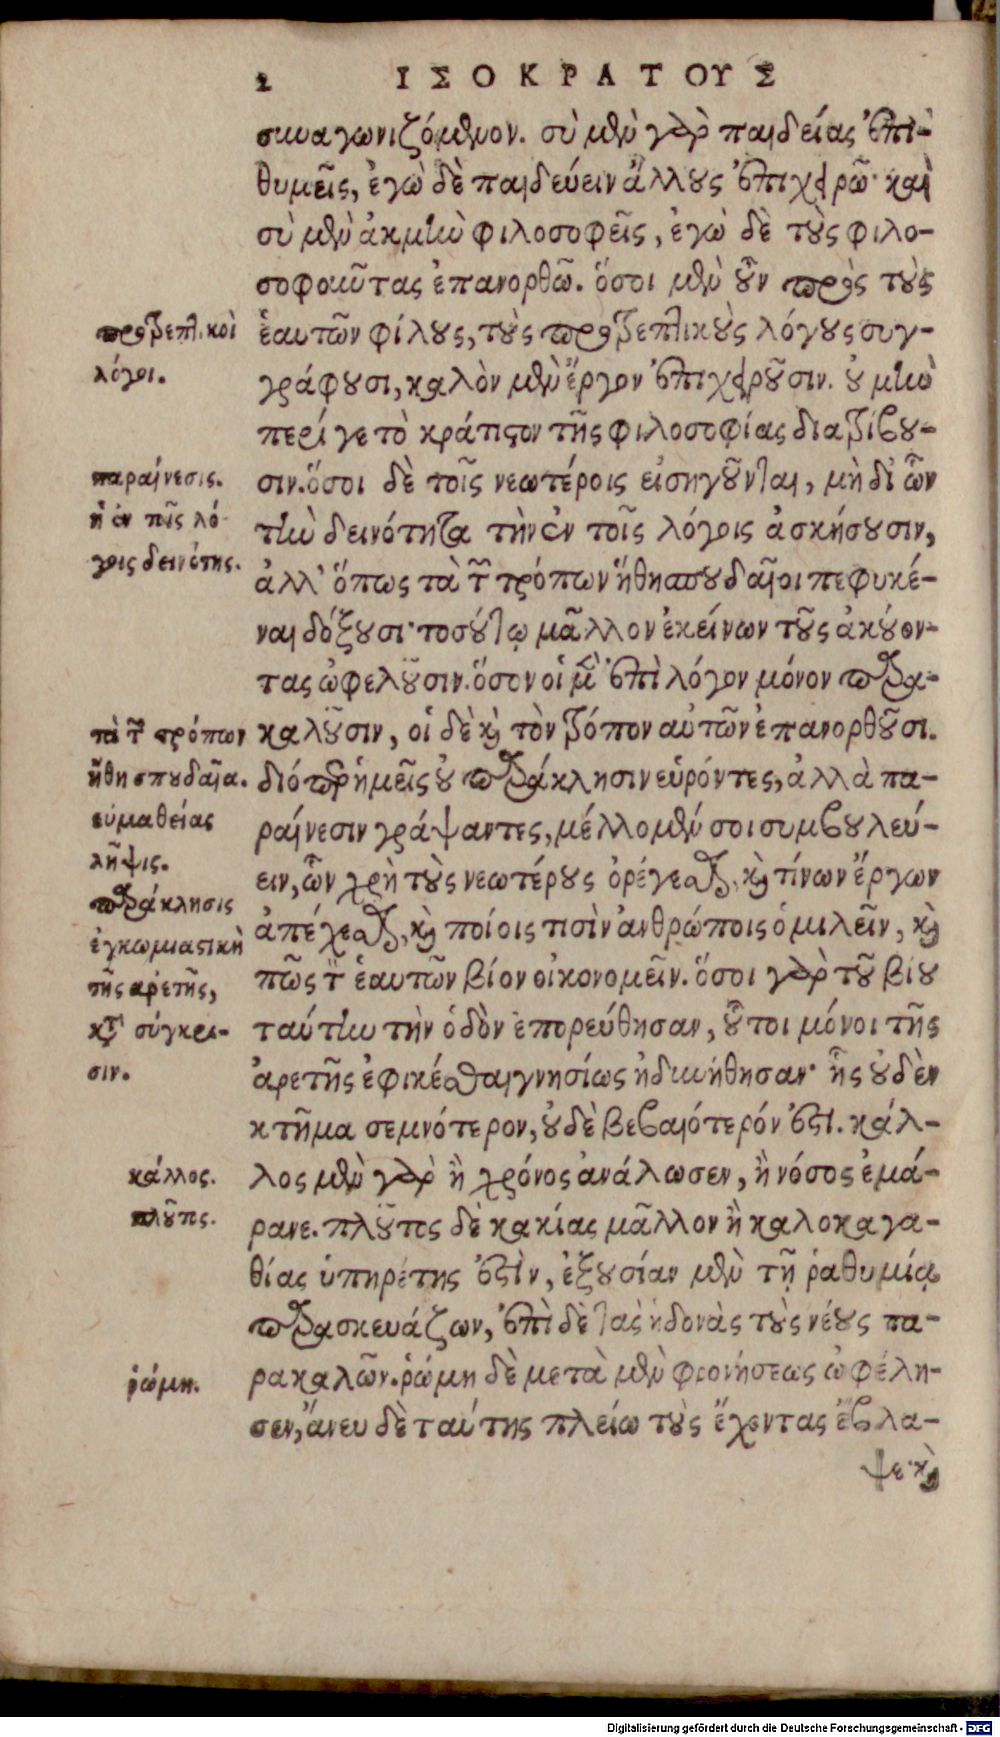 2 ΙΣΟΚΡΑΤΟΥΣ
συναγωνιζόμενον. σὺ μὲν γὰρ παιδείας ἐπι-
θυμεῖς, ἐγὼ δὲ παιδεύειν ἄλλους ἐπιχειρῶ· καὶ
σὺ μὲν ἀκμὴν φιλοσοφεῖς, ἐγὼ δὲ τοὺς φιλο-
σοφοῦντας ἐπανορθῶ. ὅσοι μὲν οὖν πρὸς τοὺς
προτρεπτικοὶ
ἑαυτῶν φίλους, τοὺς προτρεπτικοὺς λόγους συγ-
λόγοι.
γράφουσι, καλὸν μὲν ἔργον ἐπιχειροῦσιν. οὐ μὴν
περί γε τὸ κράτιστον τῆς φιλοσοφίας διατρίβου-
παραίνεσις.
σιν. ὅσοι δὲ τοῖς νεωτέροις εἰσηγοῦνται, μὴ δι' ὧν
ἡ ἐν τοῖς λό-
τὴν δεινότητα τὴν ἐν τοῖς λόγοις ἀσκήσουσιν,
γοις δεινότης.
ἀλλ' ὅπως τὰ τῶν τρόπων ἤθη σπουδαῖοι πεφυκέ-
ναι δόξουσι· τοσούτῳ μᾶλλον ἐκείνων τοὺς ἀκούον-
τας ὠφελοῦσιν. ὅσον οἱ μὲν ἐπὶ λόγον μόνον παρα-
τὰ τῶν τρόπων
καλοῦσιν, οἱ δὲ καὶ τὸν τρόπον αὐτῶν ἐπανορθοῦσι.
ἤθη σπουδαῖα.
διόπερ ἡμεῖς οὐ παράκλησιν εὑρόντες, ἀλλὰ πα-
εὐμαθείας
ραίνεσιν γράψαντες, μέλλομέν σοι συμβουλεύ-
λῆψις.
ειν, ὧν χρὴ τοὺς νεωτέρους ὀρέγεσθαι, καὶ τίνων ἔργων
παράκλησις
ἀπέχεσθαι, καὶ ποίοις τισὶν ἀνθρώποις ὁμιλεῖν, καὶ
ἐγκωμιαστικὴ
πῶς τὸν ἑαυτῶν βίον οἰκονομεῖν. ὅσοι γὰρ τοῦ βίου
τῆς ἀρετῆς,
ταύτην τὴν ὁδὸν ἐπορεύθησαν, οὗτοι μόνοι τῆς
κατὰ σύγκρι-
ἀρετῆς ἐφικέσθαι γνησίως ἠδυνήθησαν· ἧς οὐδὲν
σιν.
κτῆμα σεμνότερον, οὐδὲ βεβαιότερόν ἐστι. κάλ-
κάλλος.
λος μὲν γὰρ ἢ χρόνος ἀνάλωσεν, ἢ νόσος ἐμά-
πλοῦτος.
ρανε. πλοῦτος δὲ κακίας μᾶλλον ἢ καλοκαγα-
θίας ὑπηρέτης ἐστὶν, ἐξουσίαν μὲν τῇ ῥαθυμίᾳ
παρασκευάζων, ἐπὶ δὲ τὰς ἡδονὰς τοὺς νέους πα-
ῥώμη.
ρακαλῶν. ῥώμη δὲ μετὰ μὲν φρονήσεως ὠφέλη-
σεν, ἄνευ δὲ ταύτης πλείω τοὺς ἔχοντας ἔβλα-
ψε· καὶ
Digitalisierung gefördert durch die Deutsche Forschungsgemeinschaft - DFG